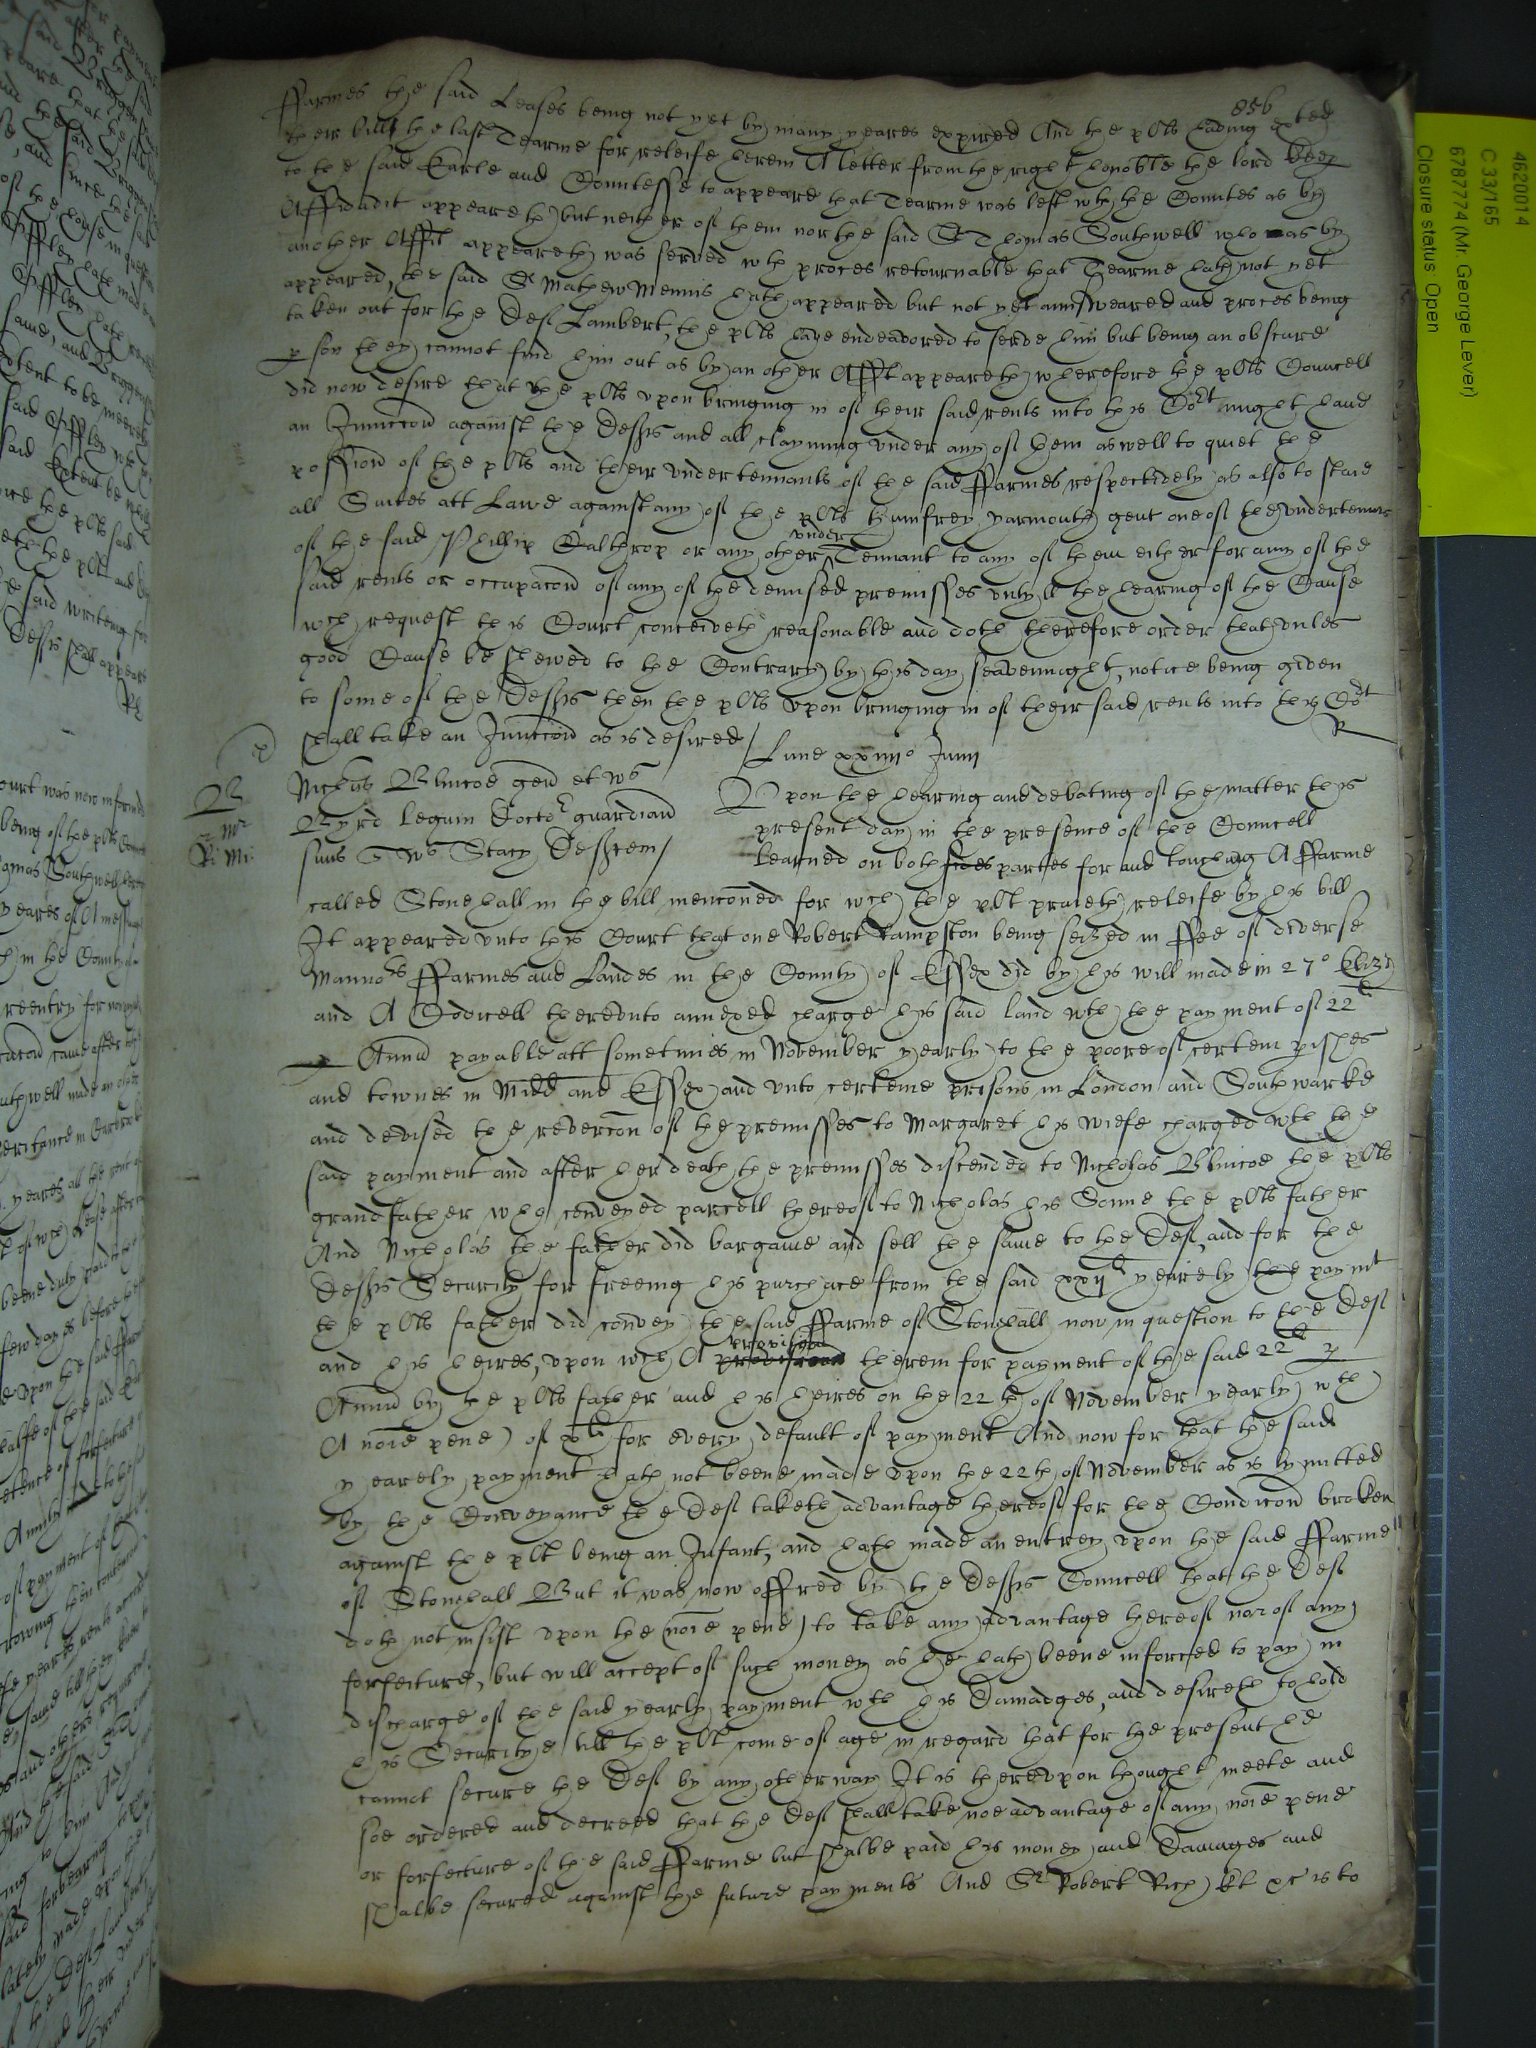 856
ffarmes the said Leases being not yet by many yeares expired And the plts having exted
their bill the last Tearme for releife herein A letter from the right honoble the lord keep
to the said Earle and Countesse to appeare that Tearme was left wth the Countes as by
Affidavit appeareth but neither of them nor the said Sr Thomas Southwell who as by
another Affit appeareth was served wth proces retournable that Tearme hath not yet
appeared, the said Sr Mathew Mennis hath appeared but not yet aunsweared and proces being
taken out for the Deft Lambert, the plts have endeavored to serve him but being an obscure
pson they cannot find him out as by an other Affit appeareth wherefore the plts Councell
did now desire that the plts vpon bringing in of their said rents into this Cort might have
an Iniunccon against the Defts and all clayming vnder any of them aswell to quiet the
possion of the plts and their vndertennants of the said ffarmes respectively as also to staie
all Suites att Lawe against any of the plts Humfrey yarmouth gent one of the vndertennts
of the said Phillip Calthrop or any other vnder Tennant to any of them either for any of the
said rents or occupacon of any of the demised premisses vntyll the hearing of the Cause
wch request this Court conceiveth reasonable and doth therefore order that vnles
good Cause be shewed to the Contrary by this day seavennight, notice being given
to some of the Defts then the plts vpon bringing in of their said rents into this Cort
shall take an Iniunccon as is desired / R
Lune xxiiijo Junij
B
Nichus Blincoe gen et Ws
Byrd legum Doctor guardian
suus q Ws Stacy Deftem /
Ri: Mi:
Vpon the hearing and debating of the matter this
present day in the presence of the Councell
learned on both sides parties for and touching A ffarme
called Stonehall in the bill menconed for wch the plt praieth releife by his bill
It appeared vnto this Court that one Robert Rampston being seized in ffee of diverse
Mannors ffarmes and Landes in the County of Essex did by his will made in 27o Eliz
and A Codicell therevnto annexed charge his said land wth the payment of 22l
p Annu payable att sometimes in November yearly to the poore of certein pishes
and townes in Midd and Essex and vnto certeine prisons in London and Southwarke
and devised the revercon of the premisses to Margaret his wiefe charged wth the
said payment and after her death the premisses discended to Nicholas Blincoe the plts
grandfather who conveyed parcell thereof to Nicholas his Sonne the plts father
And Nicholas the father did bargaine and sell the same to the Deft, and for the
Defts Security for freeing his purchace from the said xxijl yearely the paymt
the plts father did convey the said ffarme of Stonehall now in question to the Deft
and his heires, vpon wch A provision proviso therein for payment of the said 22l p
Annu by the plts father and his heires on the 22th of November yearly wth
A noie pene of xl for every default of payment And now for that the said
yearely payment hath not beene made vpon the 22th of November as is lymitted
by the Conveyance the Deft taketh advantage thereof for the Condicon broken
against the plt being an Infant, and hath made an entrey vpon the said ffarme
of Stonehall But it was now offred by the Defts Councell that the Deft
doth not insist vpon the (noie pene) to take any advantage thereof nor of any
forfeiture, but will accept of such money as he hath beene inforced to pay in
discharge of the said yearly payment wth his Damadges, and desireth to hold
his Securitye till the plt come of age in regard that for the present he
cannot secure the Deft by any other way It is therevpon thought meete and
soe ordered and decreed that the Deft shall take noe advantage of any noie pene
or forfecture of the said ffarme but shalbe paid his money and Damages and
shalbe secured against the future payments And Sr Robert Rich kt xc is to
4620014
C 33/165
6787774 (Mr. George Lever)
Closure status: Open